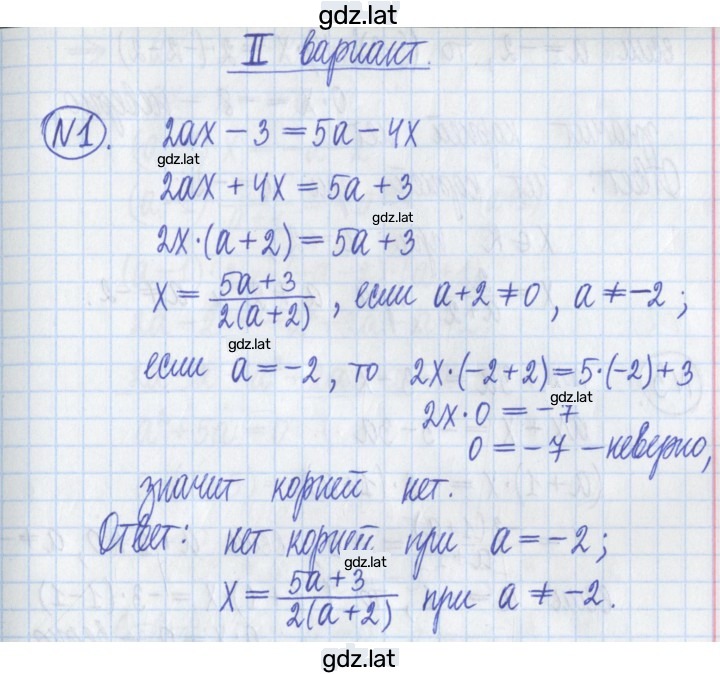 gdz.lat
II вариант.
N1. 2ax - 3 = 5a - 4x
gdz.lat
2ax + 4x = 5a + 3
gdz.lat
2x·(a+2) = 5a + 3
x = (5a+3)/(2(a+2)), если a+2 ≠ 0, a ≠ -2;
gdz.lat
если a = -2, то 2x·(-2+2) = 5·(-2)+3
gdz.lat
2x·0 = -7
0 = -7 - неверно,
значит корней нет.
Ответ: нет корней при a = -2;
gdz.lat
x = (5a+3)/(2(a+2)), при a ≠ -2.
gdz.lat